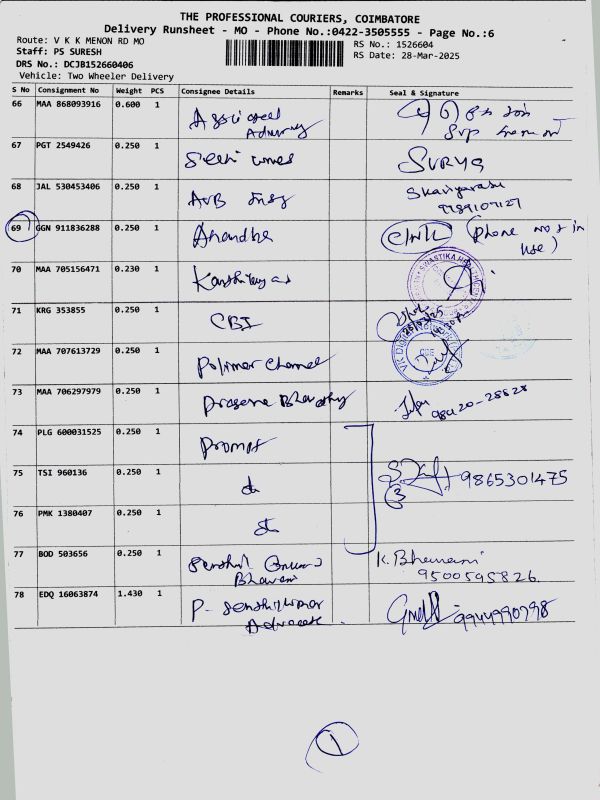 THE PROFESSIONAL COURIERS, COIMBATORE
Delivery Runsheet - MO - Phone No.:0422-3505555 - Page No.:6
Route: V K K MENON RD MO
RS No.: 1526604
Staff: PS SURESH
RS Date: 28-Mar-2025
DRS No.: DCJB152660406
Vehicle: Two Wheeler Delivery
S No Consignment No Weight PCS Consignee Details Remarks Seal & Signature
66 MAA 868093916 0.600 1
67 PGT 2549426 0.250 1 SURYA
68 JAL 530453406 0.250 1 AVB
69 GGN 911836288 0.250 1 Anandha (Phone not in
use)
70 MAA 705156471 0.230 1
71 KRG 353855 0.250 1 CBI
72 MAA 707613729 0.250 1 Polimer Channel
73 MAA 706297979 0.250 1 Prasanna Bharathy
74 PLG 600031525 0.250 1 Prompt
75 TSI 960136 0.250 1 do 9865301475
3
76 PMK 1380407 0.250 1 do
77 BOD 503656 0.250 1 Senthil K. Bhavani
Bhavani 9500595826
78 EDQ 16063874 1.430 1 P. Senthilkumar 9944990798
Advocate
1